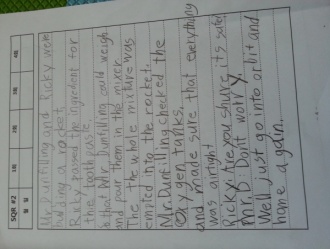 SQR #2
Mr Dunfilling and Ricky were
building a rocket.
Ricky passed the ingredient for
the toothpaste
so that Mr Dunfilling could weigh
and pour them in the mixer.
The the whole mixture was
emptied into the rocket.
Mr. Dunfilling checked the
oxygen tanks.
and made sure that everything
was airtight
Ricky: Are you shure, its safe?
Mr. D: Don't worry.
We'll just go into orbit and
home again.